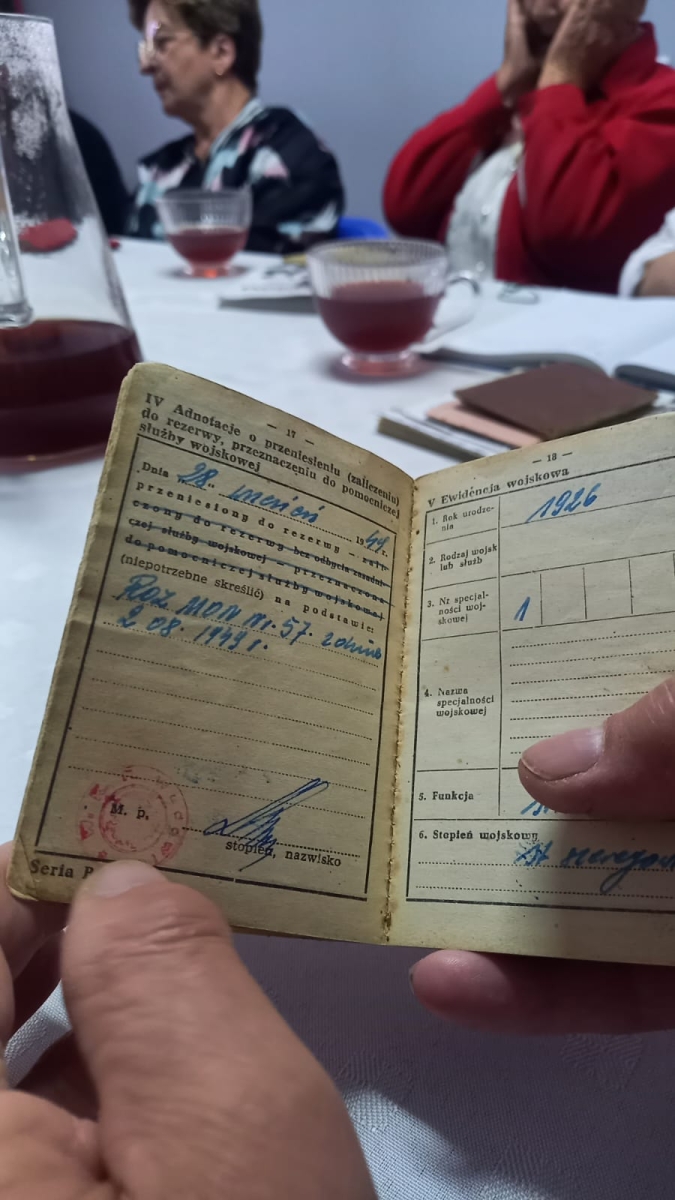 — 17 —
IV Adnotacje o przeniesieniu (zaliczeniu)
do rezerwy, przeznaczeniu do pomocniczej
służby wojskowej
Dnia „28” wrzesień 1949 r.
przeniesiony do rezerwy — zali-
czony do rezerwy bez odbycia zasadni-
czej służby wojskowej — przeznaczono
do pomocniczej służby wojskowej
(niepotrzebne skreślić) na podstawie:
Roz MON nr. 57. z dnia
2 08. 1949 r.
M. p.
stopień, nazwisko
Seria
— 18 —
V Ewidencja wojskowa
1. Rok urodze-
nia
1926
2. Rodzaj wojsk
lub służb
3. Nr specjal-
ności woj-
skowej
1
4. Nazwa
specjalności
wojskowej
5. Funkcja
6. Stopień wojskowy
st szeregow